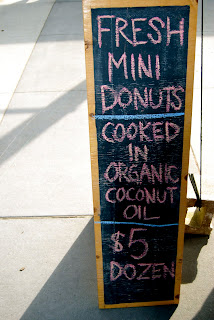 FRESH
MINI
DONUTS
COOKED
IN
ORGANIC
COCONUT
OIL
$5
DOZEN